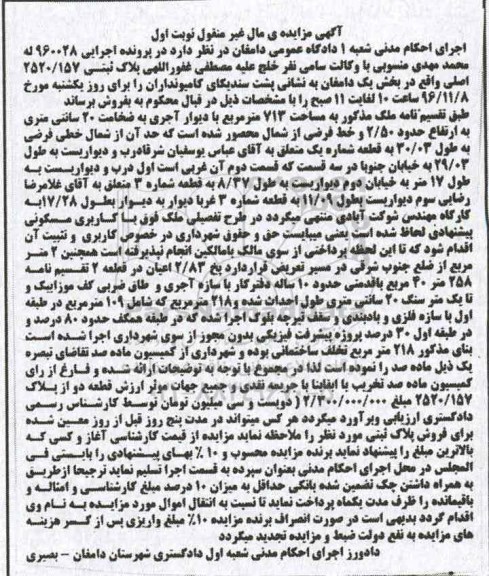 آگهی مزایده ی مال غیر منقول نوبت اول
اجرای احکام مدنی شعبه ۱ دادگاه عمومی دامغان در نظر دارد در پرونده اجرایی ۹۶۰۰۲۸ له
محمد مهدی منسوبی با وکالت سامی نفر خلج علیه مصطفی غفوراللهی پلاک ثبتی ۲۵۲۰/۱۵۷
اصلی واقع در بخش یک دامغان به نشانی پشت سندیکای کامیونداران را برای روز یکشنبه مورخ
۹۶/۱۱/۸ ساعت ۱۰ لغایت ۱۱ صبح را با مشخصات ذیل در قبال محکوم به بفروش برساند
طبق تقسیم نامه ملک مذکور به مساحت ۷۱۳ مترمربع با دیوار آجری به ضخامت ۲۰ سانتی متری
به ارتفاع حدود ۲/۵۰ و خط فرضی از شمال محصور شده است که حد آن از شمال خطی فرضی
به طول ۳۰/۰۳ به قطعه شماره یک متعلق به آقای عباس یوسفیان شرقادرب و دیواریست به طول
۲۹/۰۳ به خیابان جنوبا در سه قسمت که قسمت دوم آن غربی است اول درب و دیواریست به
طول ۱۷ متر به خیابان دوم دیواریست به طول ۸/۳۷ به قطعه شماره ۳ متعلق به آقای غلامرضا
رضایی سوم دیواریست بطول ۱۱/۰۹ به قطعه شماره ۳ غربا دیوار به دیوار بطول ۱۷/۲۸ به
کارگاه مهندس شوکت آبادی منتهی میگردد در طرح تفصیلی ملک فوق با کاربری مسکونی
پیشنهادی لحاظ شده است یعنی میبایست حق و حقوق شهرداری در خصوص کاربری و تثبیت آن
اقدام شود که تا این لحظه پرداختی از سوی مالک یامالکین انجام نپذیرفته است همچنین ۲ متر
مربع از ضلع جنوب شرقی در مسیر تعریض قراردارد پخ ۲/۸۳ اعیان در قطعه ۲ تقسیم نامه
۲۵۸ متر ۴۰ مربع باقدمتی حدود ۱۰ ساله دفترکار با سازه آجری و طاق ضربی کف موزاییک و
تا یک متر سنگ ۲۰ سانتی متری طول احداث شده و ۲۱۸ مترمربع که شامل ۱۰۹ مترمربع در طبقه
اول با سازه فلزی و بادبندی و سقف تیرچه بلوک اجرا شده که در طبقه همکف حدود ۸۰ درصد و
در طبقه اول ۳۰ درصد پروژه پیشرفت فیزیکی بدون مجوز از سوی شهرداری اجرا شده است
بنای مذکور ۲۱۸ متر مربع تخلف ساختمانی بوده و شهرداری از کمیسیون ماده صد تقاضای تبصره
یک ذیل ماده صد را نموده است لذا در مجموع با توجه به توضیحات ارائه شده و فارغ از رای
کمیسیون ماده صد تخریب یا ابقابنا با جریمه نقدی و جمیع جهات موثر ارزش قطعه دو از پلاک
۲۵۲۰/۱۵۷ مبلغ ۲/۳۰۰/۰۰۰/۰۰۰ ر دویست و سی میلیون تومان توسط کارشناس رسمی
دادگستری ارزیابی وبرآورد میگردد هر کس میتواند در مدت پنج روز قبل از روز معین شده
برای فروش پلاک ثبتی مورد نظر را ملاحظه نماید مزایده از قیمت کارشناسی آغاز و کسی که
بالاترین مبلغ را پیشنهاد نماید برنده مزایده محسوب و ۱۰ ٪ بهای پیشنهادی را بایستی فی
المجلس در محل اجرای احکام مدنی بعنوان سپرده به قسمت اجرا تسلیم نماید ترجیحا ازطریق
به همراه داشتن چک تضمین شده بانکی حداقل به میزان ۱۰ درصد مبلغ کارشناسی و امثاله و
باقیمانده را ظرف مدت یکماه پرداخت نماید تا نسبت به انتقال اموال مورد مزایده به نام وی
اقدام گردد بدیهی است در صورت انصراف برنده مزایده ۱۰٪ مبلغ واریزی پس از کسر هزینه
های مزایده به نفع دولت ضبط و مزایده تجدید میگردد
دادورز اجرای احکام مدنی شعبه اول دادگستری شهرستان دامغان – بصیری